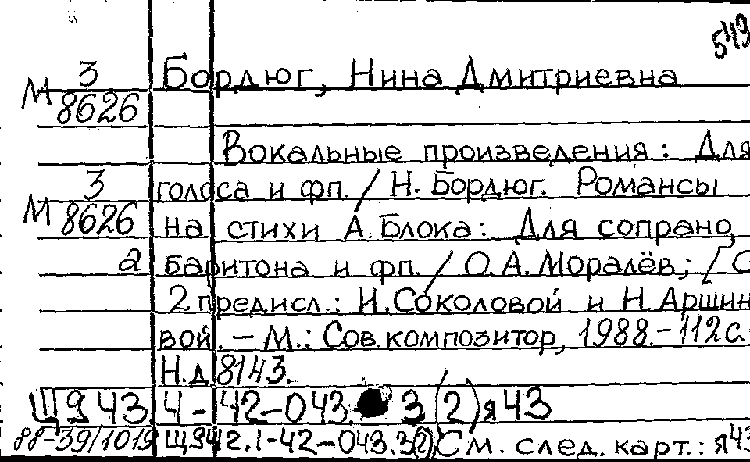 543
М 3/8626 Бордюг, Нина Дмитриевна
Вокальные произведения: Для
М 3/8626 голоса и фп. / Н. Бордюг. Романсы
на стихи А. Блока: Для сопрано,
а баритона и фп. / О.А. Моралёв; [С
2 предисл.: И. Соколовой и Н. Аршин
вой. – М.: Сов. композитор, 1988. – 112 с.
Н.д. 8143.
Щ943.4-42-043. 3(2)я43
88-39/1019 Щ942.1-42-043.3(2) См. след. карт.: я43